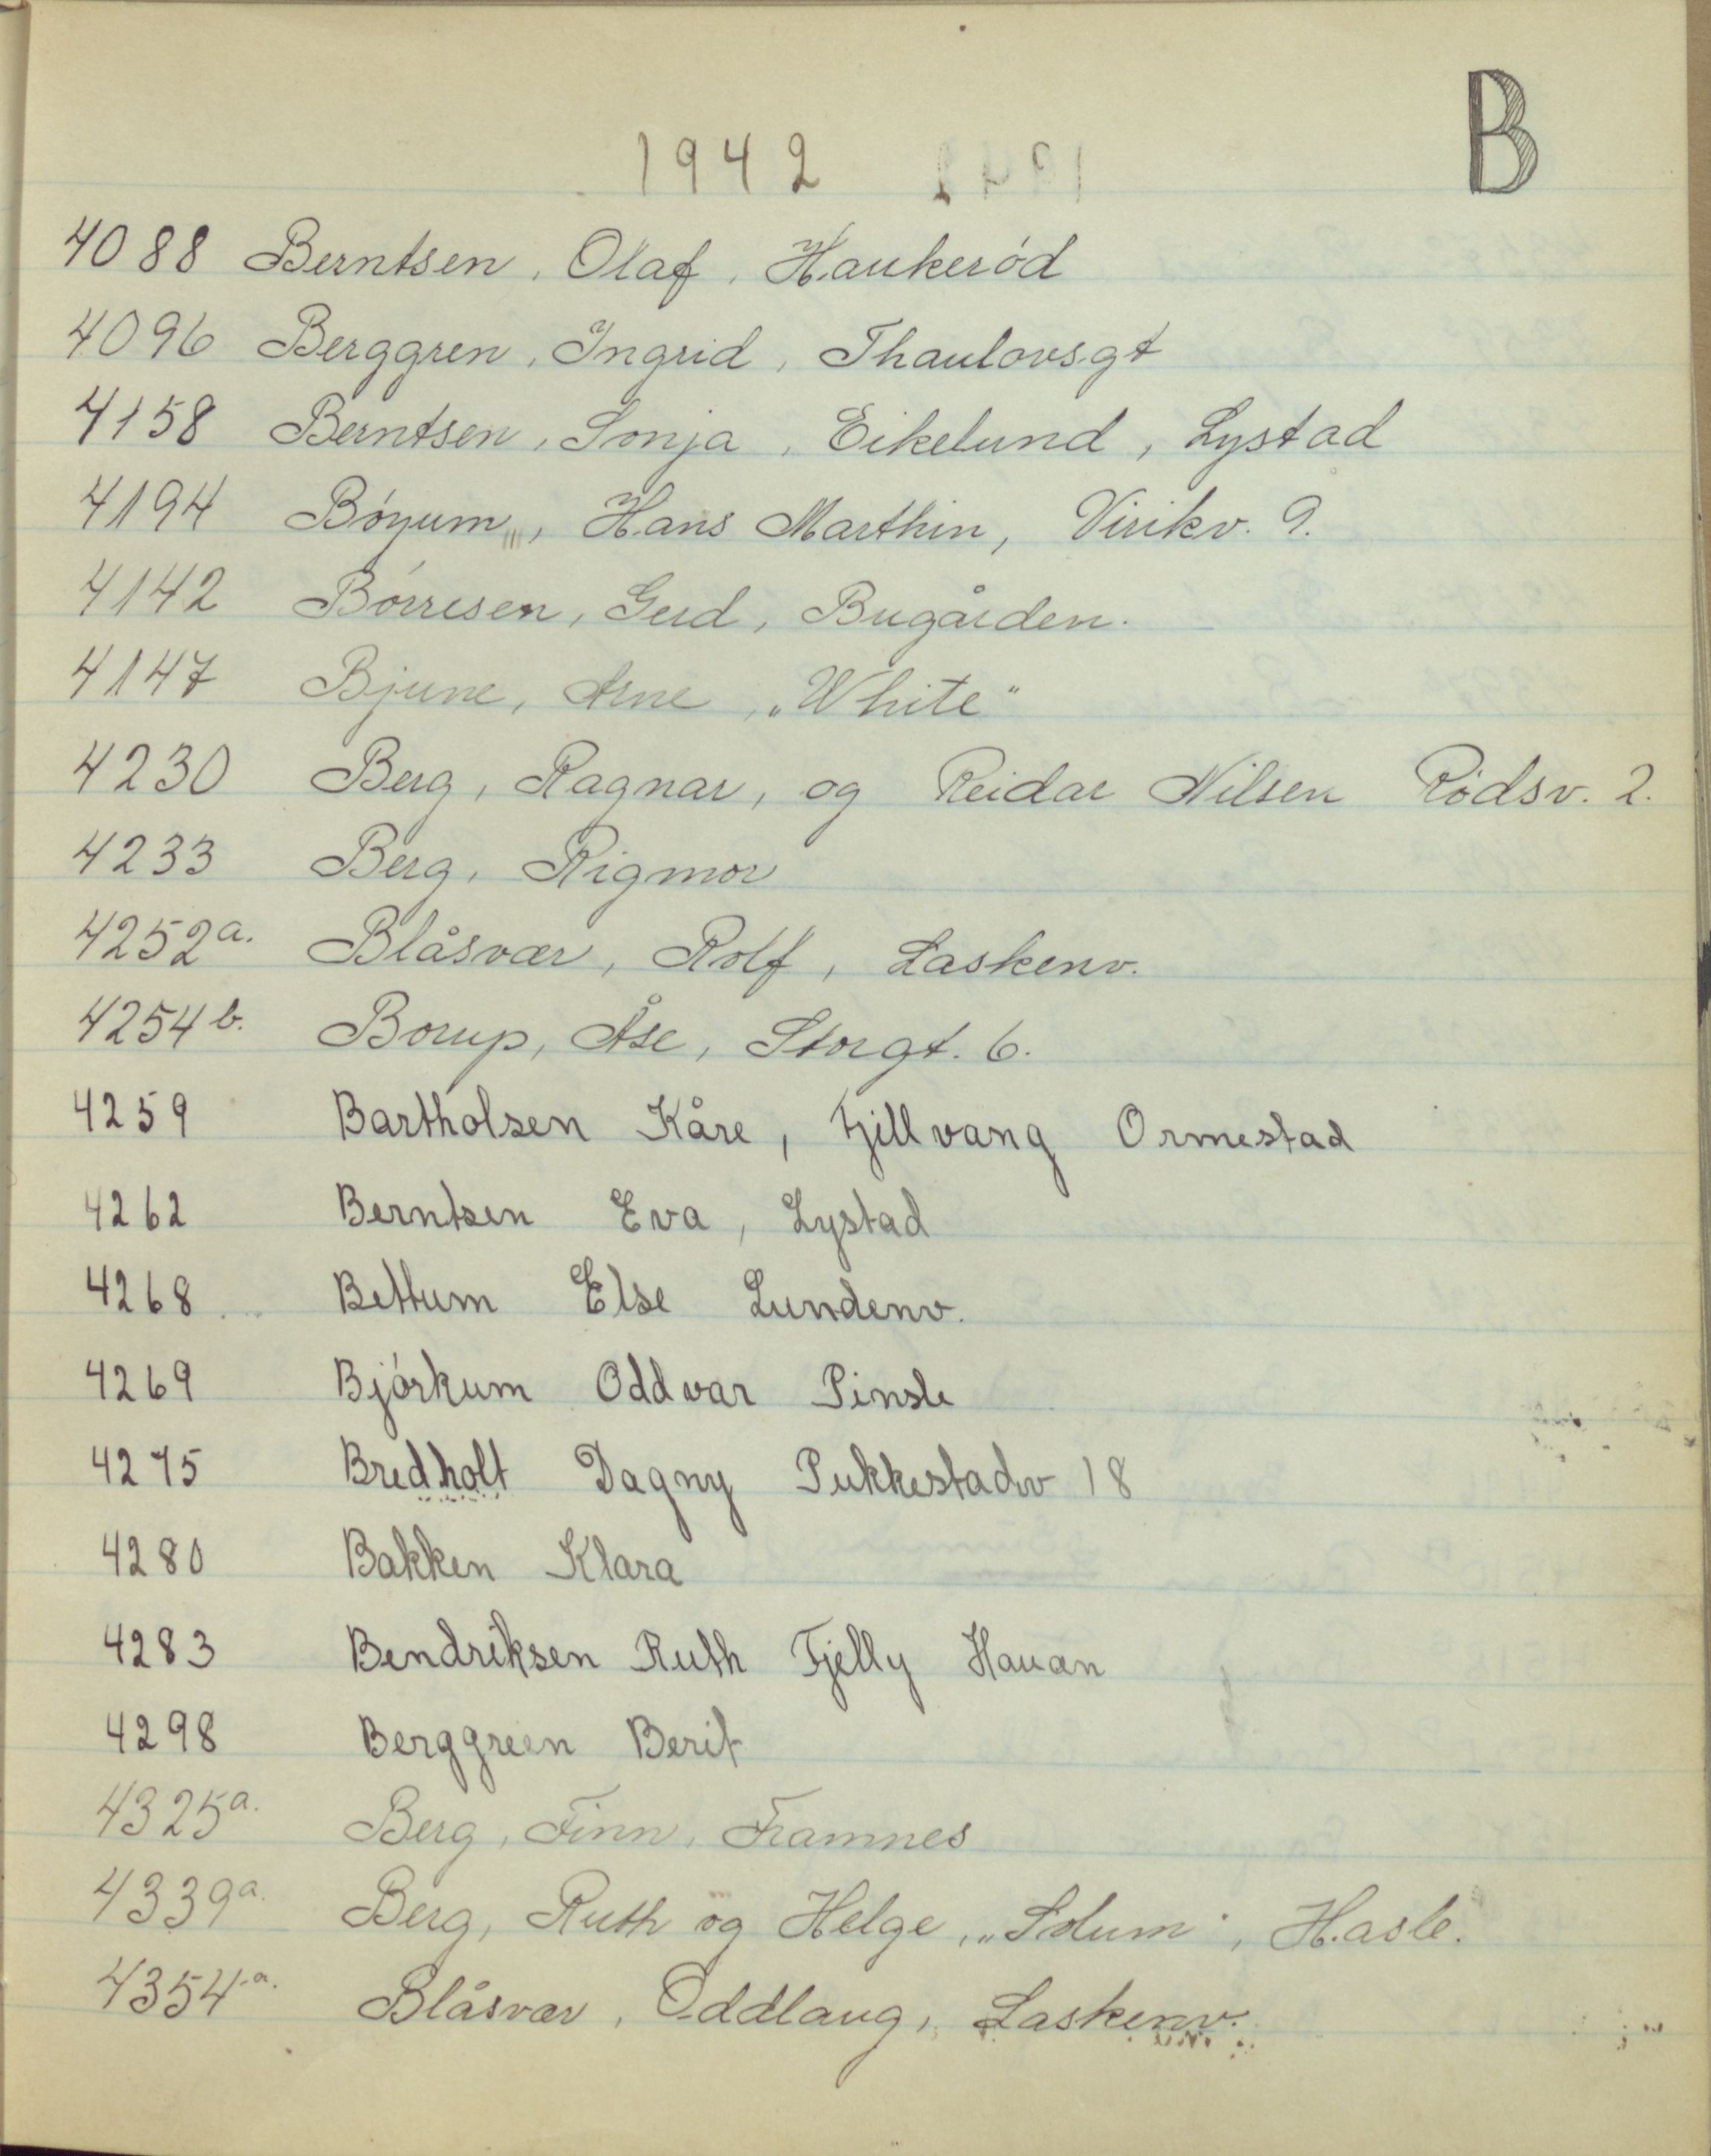 B
1942
4088 Berntsen, Olaf, Haukerød
4096 Berggren, Ingrid, Thaulovsgt
4158 Berntsen, Sonja, Eikelund, Lystad
4194 Bøyum, Hans Marthin, Virikv. 9.
4142 Børresen, Gerd, Bugården.
4147 Bjune, Arne, „White"
4230 Berg, Ragnar, og Reidar Nilsen Rødsv. 2.
4233 Berg, Rigmor
4252a. Blåsvær, Rolf, Laskenv.
4254b. Borup, Åse, Storgt. 6.
4259 Bartholsen Kåre, Fjillvang Ormestad
4262 Berntsen Eva, Lystad
4268 Bettum Else Lundenv.
4269 Bjørkum Oddvar Pinsle
4275 Bredholt Dagny Pukkestadv 18
4280 Bakken Klara
4283 Bendriksen Ruth Fjelly Hauan
4298 Berggreen Berit
4325a. Berg, Finn, Framnes
4339a. Berg, Ruth og Helge, „Solum", Hasle.
4354a. Blåsvær, Oddlaug, Laskenv.